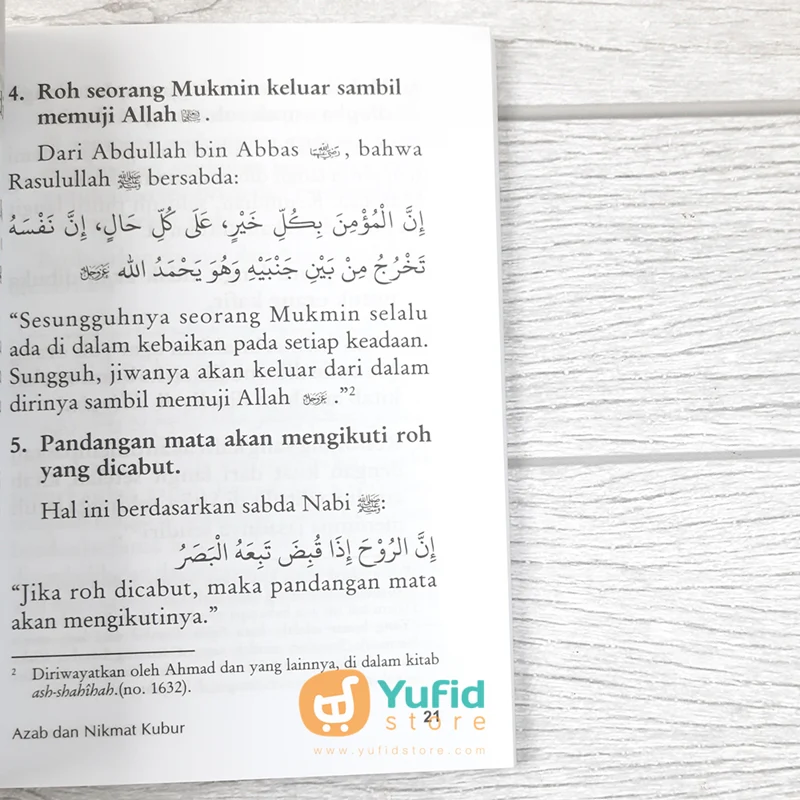 4. Roh seorang Mukmin keluar sambil
memuji Allah ﷻ.
Dari Abdullah bin Abbas, bahwa
Rasulullah ﷺ bersabda:
إِنَّ الْمُؤْمِنَ بِكُلِّ خَيْرٍ، عَلَى كُلِّ حَالٍ، إِنَّ نَفْسَهُ
تَخْرُجُ مِنْ بَيْنِ جَنْبَيْهِ وَهُوَ يَحْمَدُ الله عَزَّوَجَلَّ
“Sesungguhnya seorang Mukmin selalu
ada di dalam kebaikan pada setiap keadaan.
Sungguh, jiwanya akan keluar dari dalam
dirinya sambil memuji Allah عَزَّوَجَلَّ.”²
5. Pandangan mata akan mengikuti roh
yang dicabut.
Hal ini berdasarkan sabda Nabi ﷺ:
إِنَّ الرُّوْحَ إِذَا قُبِضَ تَبِعَهُ الْبَصَرُ
“Jika roh dicabut, maka pandangan mata
akan mengikutinya.”
² Diriwayatkan oleh Ahmad dan yang lainnya, di dalam kitab
ash-shahihah.(no. 1632).
Azab dan Nikmat Kubur
21
Yufid
store
www.yufidstore.com